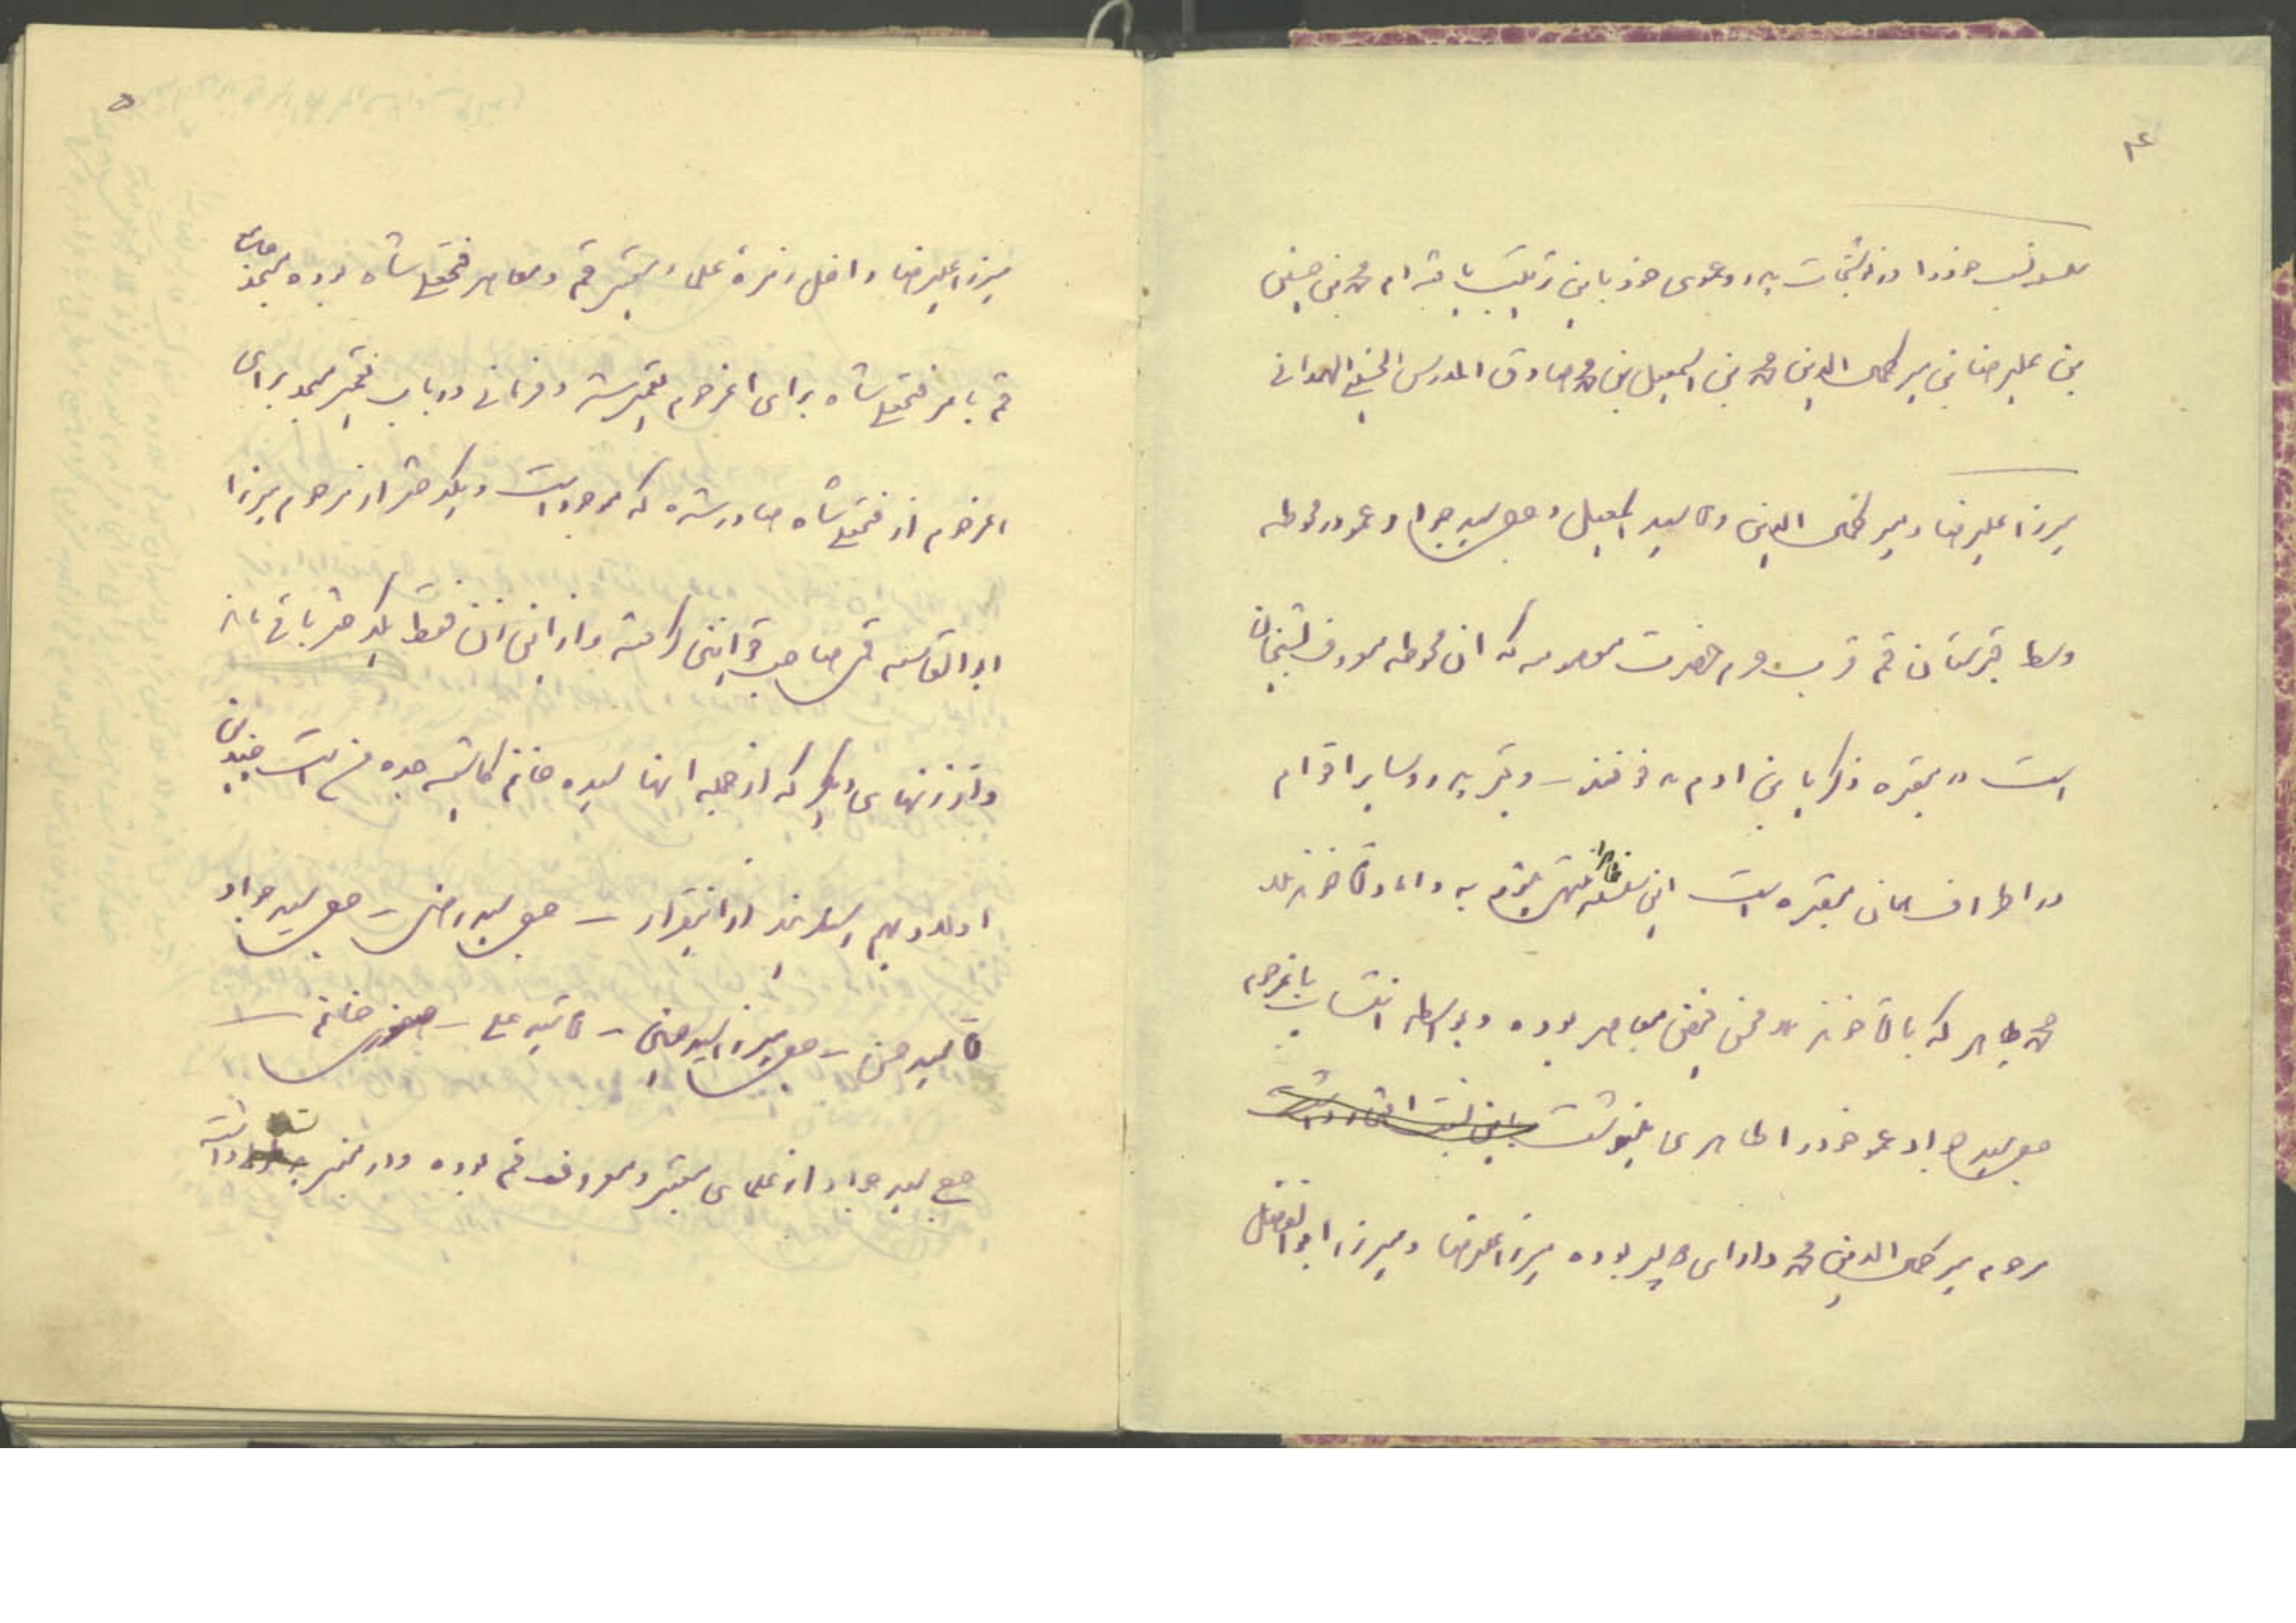 ۴
نسب خود را در نوشتجات پدر و عموی خود باین ترتیب یافته‌ام محمد بن حسین
بن علیرضا بن میر کمال الدین محمد بن اسمعیل بن محمد صادق المدرس الحسینی الهمدانی
میرزا علیرضا و میر کمال الدین و آقا سید اسمعیل و حاج سید جواد و عمو در محوطه
وسط قبرستان قم قرب حرم حضرت معصومه که ان محوطه معروف بشیخان
است در مقبره زکریا بن ادم مدفونند – و قبر پدر و سایر اقوام
در اطراف همان مقبره است این سلسله ظاهرا منتهی میشود به داماد آخوند ملا
محمد طاهر که با آخوند ملا محسن فیض معاصر بوده و بواسطه انتساب بانمرحوم
حاج سید جواد عمو خود را طاهری مینوشت باین نسبت افتخار داشت
مرحوم میر کمال الدین محمد دارای دو پسر بوده میرزا علیرضا و میرزا ابوالفضل
۵
میرزا علیرضا داخل زمره علماء معتبر قم و معاصر فتحعلی شاه بوده مسجد جامع
قم بامر فتحعلی شاه برای انمرحوم تعمیر شده و فرمانی در باب تعمیر مسجد برای
انمرحوم از فتحعلی شاه صادر شده که موجود است و یکدختر از مرحوم میرزا
ابوالقاسم قمی صاحب قوانین داشته و از این زن فقط یکدختر باقی مانده
و از زنهای دیگر که از جمله انها سیده خانم کاشیه جده من است چندین
اولاد بهم رسانیدند از اینقرار – حاج سید رضی – حاج سید جواد
آقا سید حسن – حاج میرزا سید حسین – آقا سید علی – صغری خانم –
حاج سید جواد از علمای معتبر و معروف قم بوده و در منبر داشته